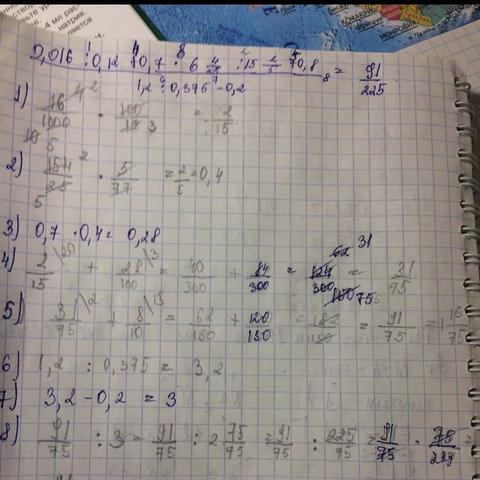 0,016 : 0,12 + 0,7 · 6 4/25 : 15 2/5 + 0,8 = 91/225
1,2 : 0,375 - 0,2
1) 16/1000 · 100/12 = 2/15
2) 154/25 · 5/77 = 2/5 = 0,4
3) 0,7 · 0,4 = 0,28
4) 2/15 + 28/100 = 40/300 + 84/300 = 124/300 = 31/75
5) 31/75 + 8/10 = 62/150 + 120/150 = 182/150 = 91/75 = 1 16/75
6) 1,2 : 0,375 = 3,2
7) 3,2 - 0,2 = 3
8) 91/75 : 3 = 91/75 : 2 75/75 = 91/75 : 225/75 = 91/75 · 75/225 =